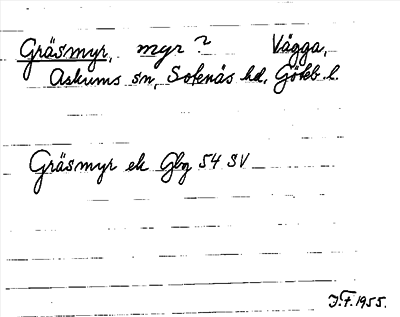 Gräsmyr, myr? Vägga,
Askums sn, Sotenäs hd, Göteb l.
Gräsmyr ek Gbg 54 SV
J.F. 1955.